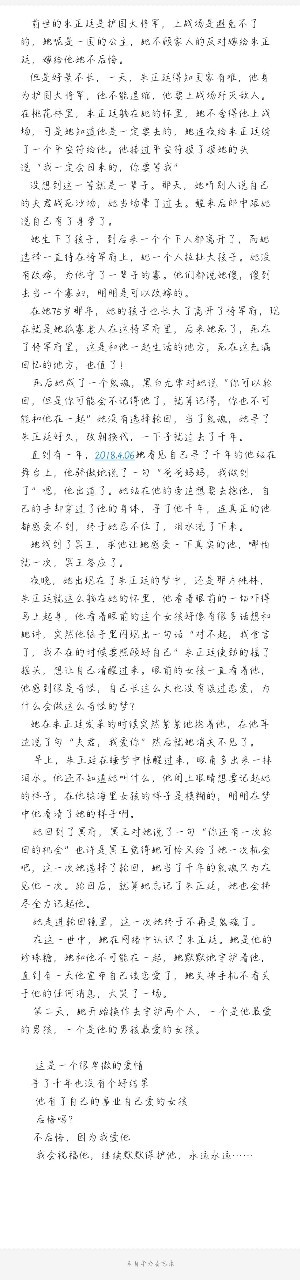 前世的朱正廷是护国大将军，上战场是避免不了
的，她呢是一国的公主，她不顾家人的反对嫁给朱正
廷，嫁给他她不后悔。
但是好景不长，一天，朱正廷得知国家有难，他身
为护国大将军，他不能退缩，他要上战场歼灭敌人。
在桃花林里，朱正廷躺在她的怀里，她不舍得他上战
场，可是她知道他是一定要去的，她连夜给朱正廷绣
了一个平安符给他。他接过平安符摸了摸她的头
说“我一定会回来的，你要等我”
没想到这一等就是一辈子。那天，她听别人说自己
的夫君战死沙场，她当场晕了过去。醒来后郎中跟她
说自己有了身孕了。
她生下了孩子，到后来一个个下人都离开了，而她
选择一直待在将军府上，她一个人拉扯大孩子。她没
有改嫁，为他守了一辈子的寡。他们都说她傻，傻到
去当一个寡妇，明明是可以改嫁的。
在她75岁那年，她的孩子也长大了离开了将军府，现
在就是她孤寡老人在这将军府里，后来她死了，死在
了将军府里，这是和他一起生活的地方，死在充满
回忆的地方，也值了！
死后她成了一个鬼魂，黑白无常对她说“你可以轮
回，但是你可能会不记得他了，就算记得，你也不可
能和他在一起”她没有选择轮回，当了鬼魂，她寻了
朱正廷好久，改朝换代，一下子就过去了千年。
直到有一年，2018.4.06她看见自己寻了千年的他站在
舞台上，他骄傲地说了一句“爸爸妈妈，我做到
了”嗯，他出道了。她站在他的旁边想要去抱他，自
己的手却穿过了他的身体，寻了他千年，连真正的他
都感受不到，终于她忍不住了，泪水流了下来。
她找到了冥王，求他让她感受一下真实的他，哪怕
就一次，冥王答应了。
夜晚，她出现在了朱正廷的梦中，还是那片桃林，
朱正廷就这么躺在她的怀里，他看着眼前的一切吓得
马上起身，他看着眼前的这个女孩好像有很多话想和
她讲，突然他脑子里闪现出一句话“对不起，我食言
了，我不在的时候要照顾好自己”朱正廷使劲的摇了
摇头，想让自己清醒过来，眼前的女孩一直看着他，
他感到很是奇怪，自己长这么大也没有谈过恋爱，为
什么会做这么奇怪的梦？
她在朱正廷发呆的时候突然紧紧地抱着他，在他耳
边说了句“夫君，我爱你”然后就她消失不见了。
早上，朱正廷在睡梦中惊醒过来，眼角多出来一抹
泪水。他还不知道她叫什么，他闭上眼睛想要记起她
的样子，在他脑海里女孩的样子是模糊的，明明在梦
中他看清了她的样子啊。
她回到了冥府，冥王对她说了一句“你还有一次轮
回的机会”也许是冥王觉得她可怜又给了她一次机会
吧，这一次她选择了轮回，她当了千年的鬼魂只为在
见他一次。轮回后，就算她忘记了朱正廷，她也会拼
尽全力记起他。
她走进轮回镜里，这一次她终于不再是鬼魂了。
在这一世中，她在网络中认识了朱正廷。她是他的
珍珠糖，她和他不可能在一起，她默默地守护着他，
直到有一天他宣布自己谈恋爱了，她关掉手机不看关
于他的任何消息，大哭了一场。
第二天，她开始换作去守护两个人，一个是他最爱
的男孩，一个是他的男孩最爱的女孩。
这是一个很卑微的爱情
寻了千年也没有个好结果
他有了自己的事业自己爱的女孩
后悔吗？
不后悔，因为我爱他
我会祝福他，继续默默保护他，永远永远……